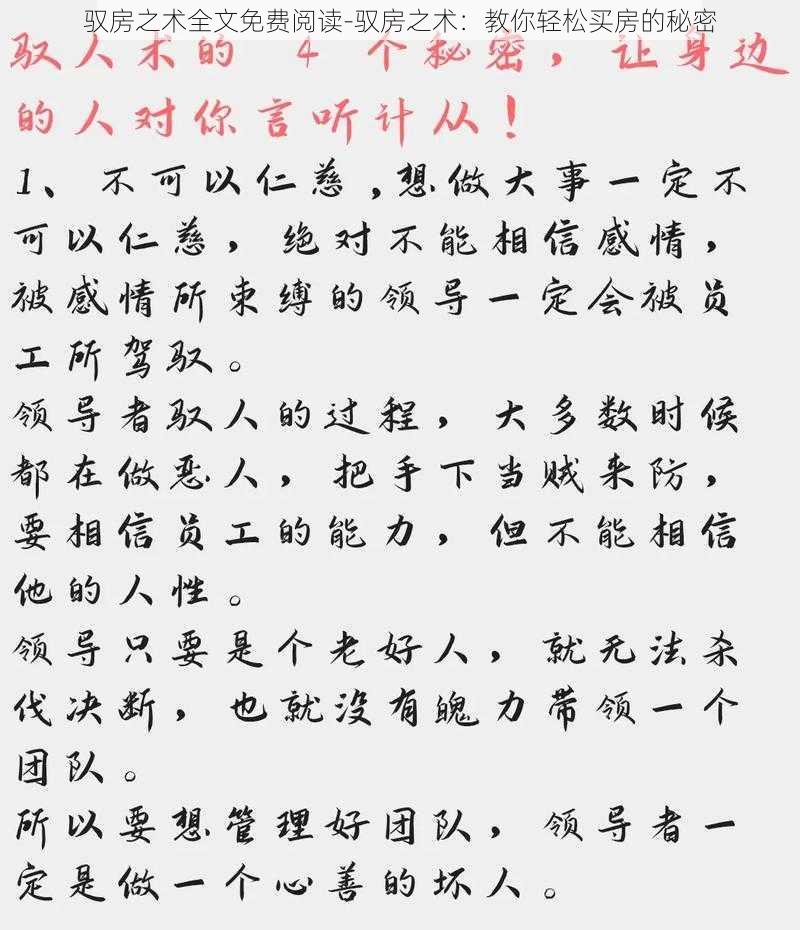 驭房之术全文免费阅读-驭房之术：教你轻松买房的秘密
驭人术的 4 个秘密，让身边
的人对你言听计从！
1、不可以仁慈,想做大事一定不
可以仁慈，绝对不能相信感情，
被感情所束缚的领导一定会被员
工所驾驭。
领导者驭人的过程，大多数时候
都在做恶人，把手下当贼来防，
要相信员工的能力，但不能相信
他的人性。
领导只要是个老好人，就无法杀
伐决断，也就没有魄力带领一个
团队。
所以要想管理好团队，领导者一
定是做一个心善的坏人。